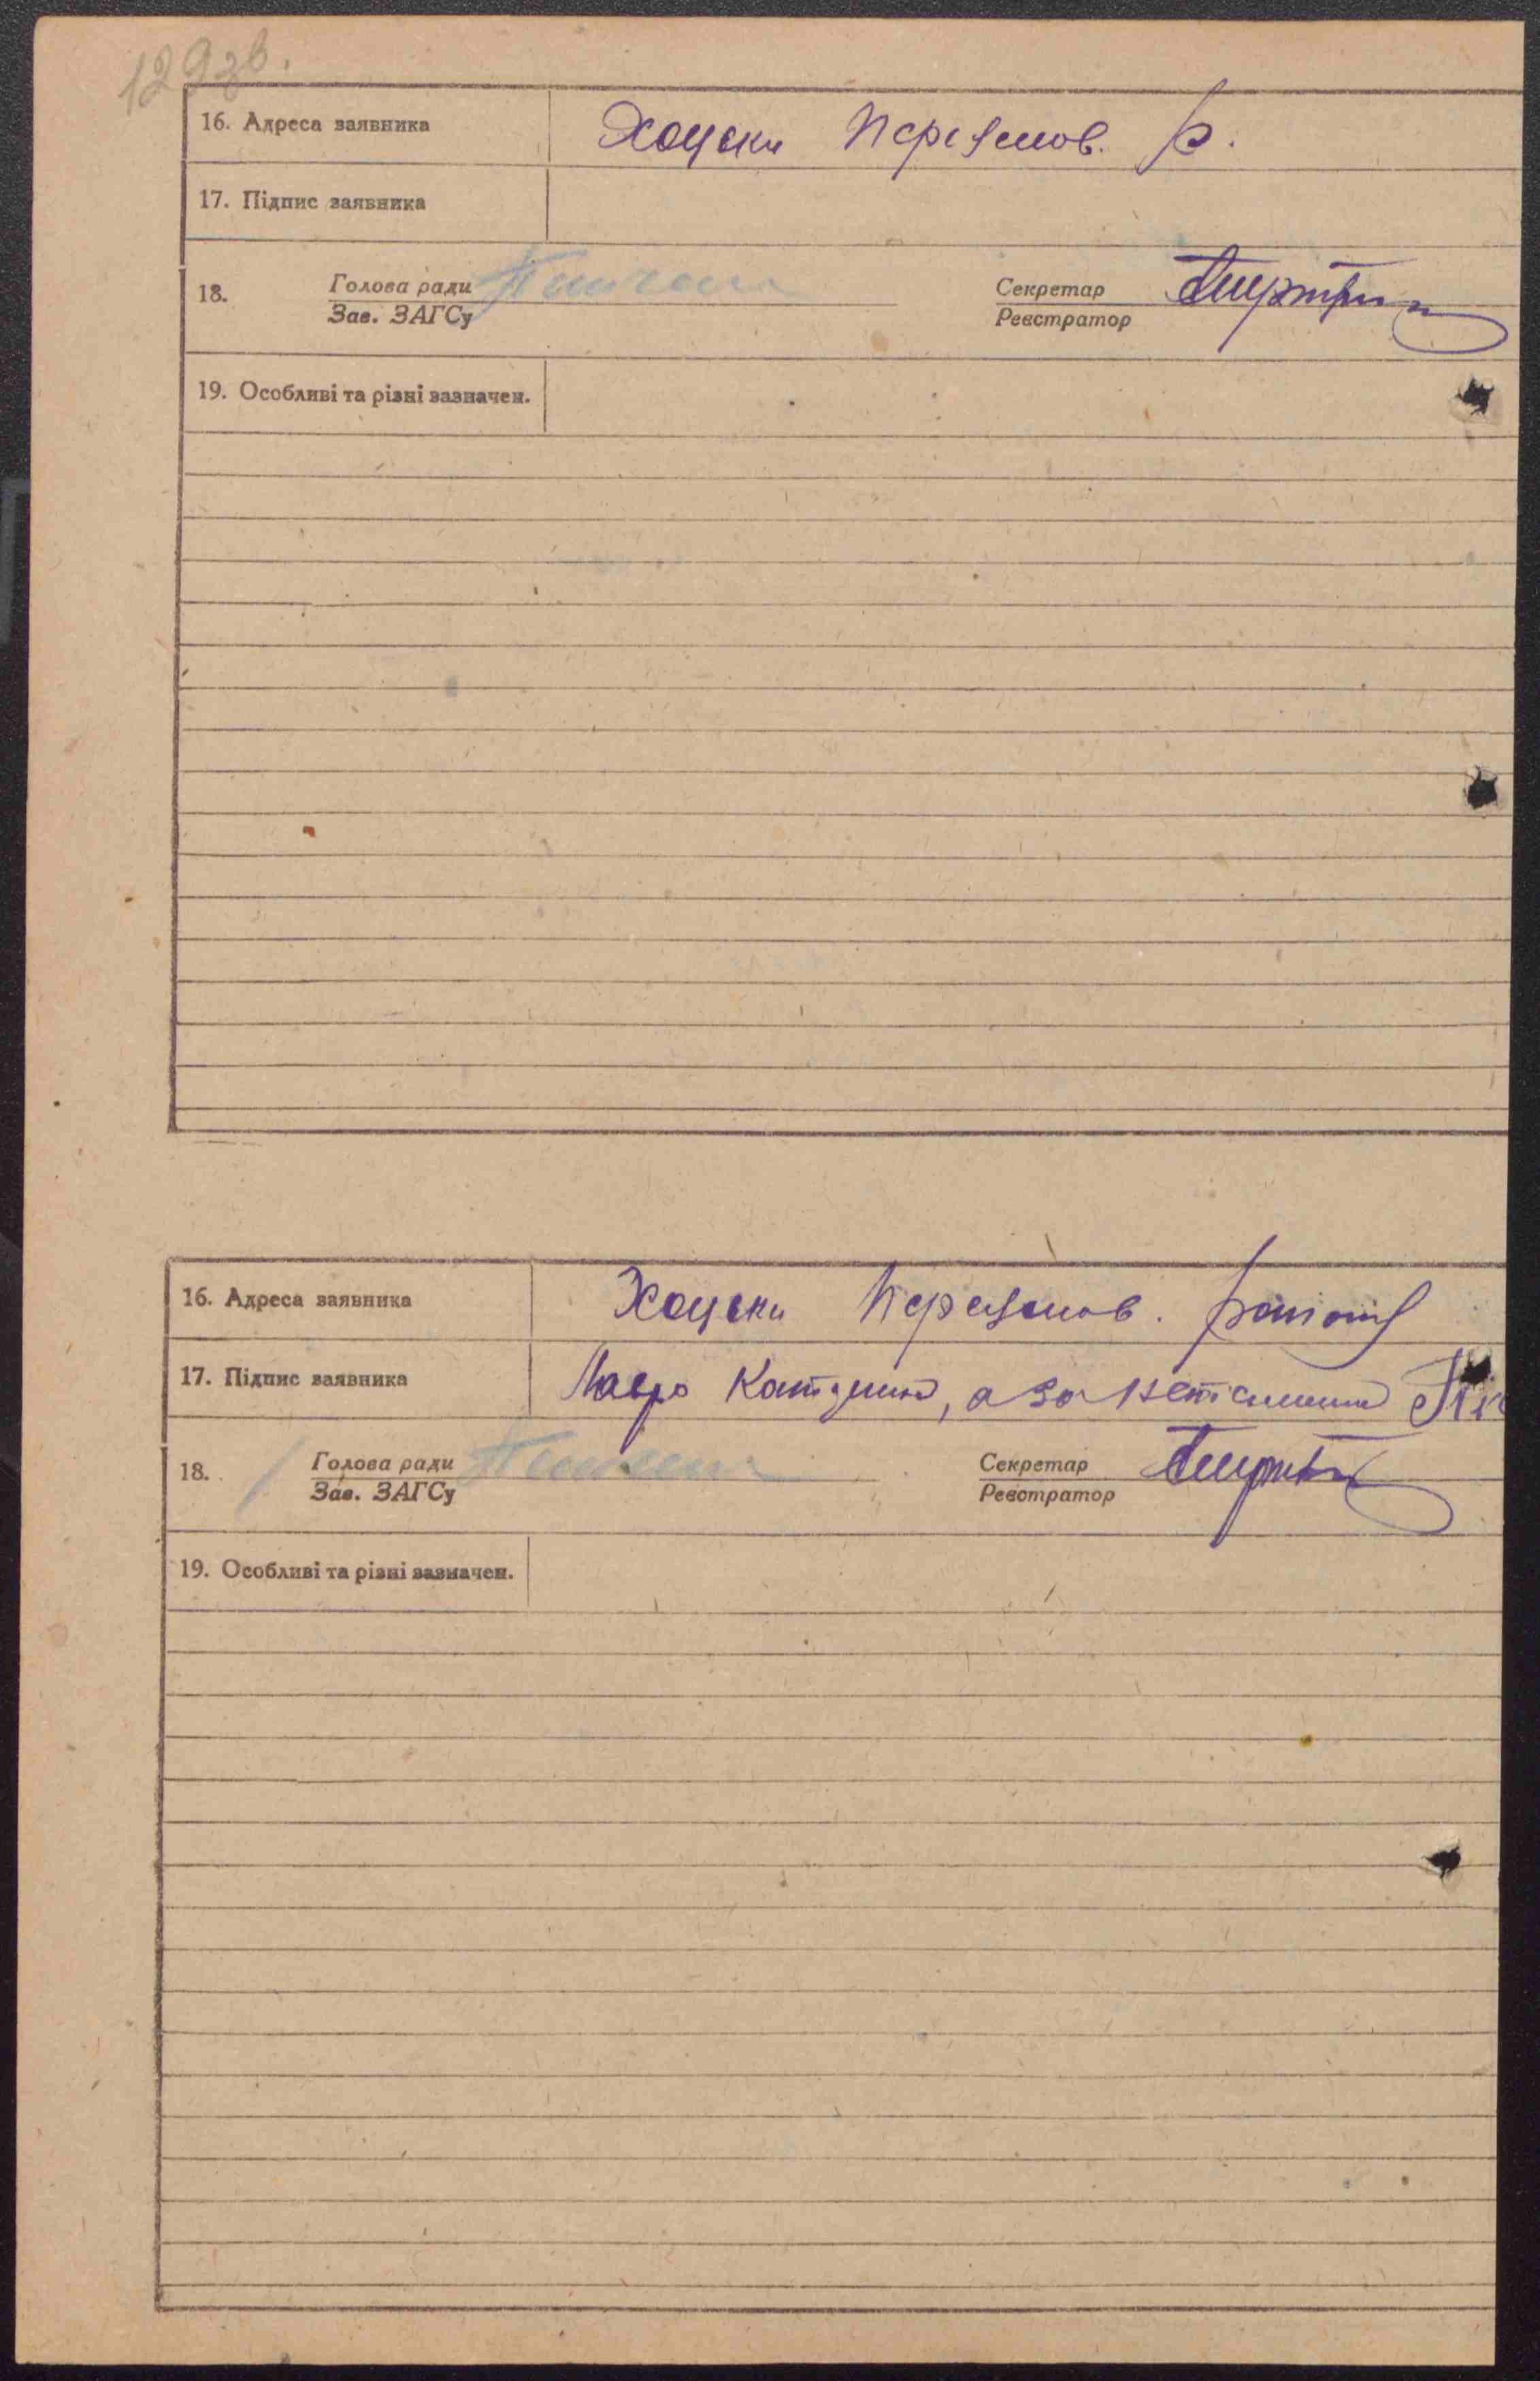 129зв.
16. Адреса заявника Хоцьки Переяслов. р.
17. Підпис заявника
18. Голова ради
Зав. ЗАГСу
Секретар
Реєстратор
19. Особливі та різні зазначен.
16. Адреса заявника Хоцьки Переяслов. району
17. Підпис заявника а за
18. Голова ради
Зав. ЗАГСу
Секретар
Реєстратор
19. Особливі та різні зазначен.